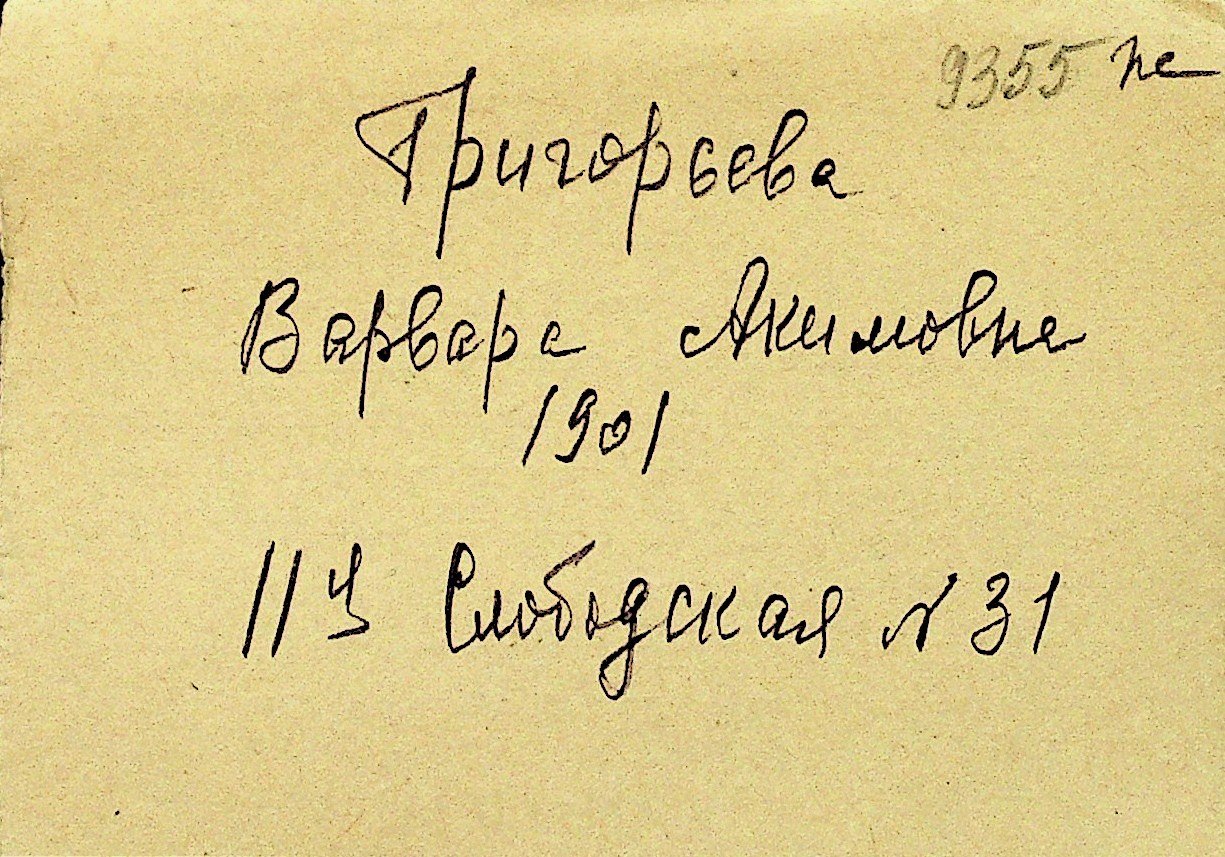 9355 пе
Григорьева
Варвара Акимовна
1901
113 Слободская N 31